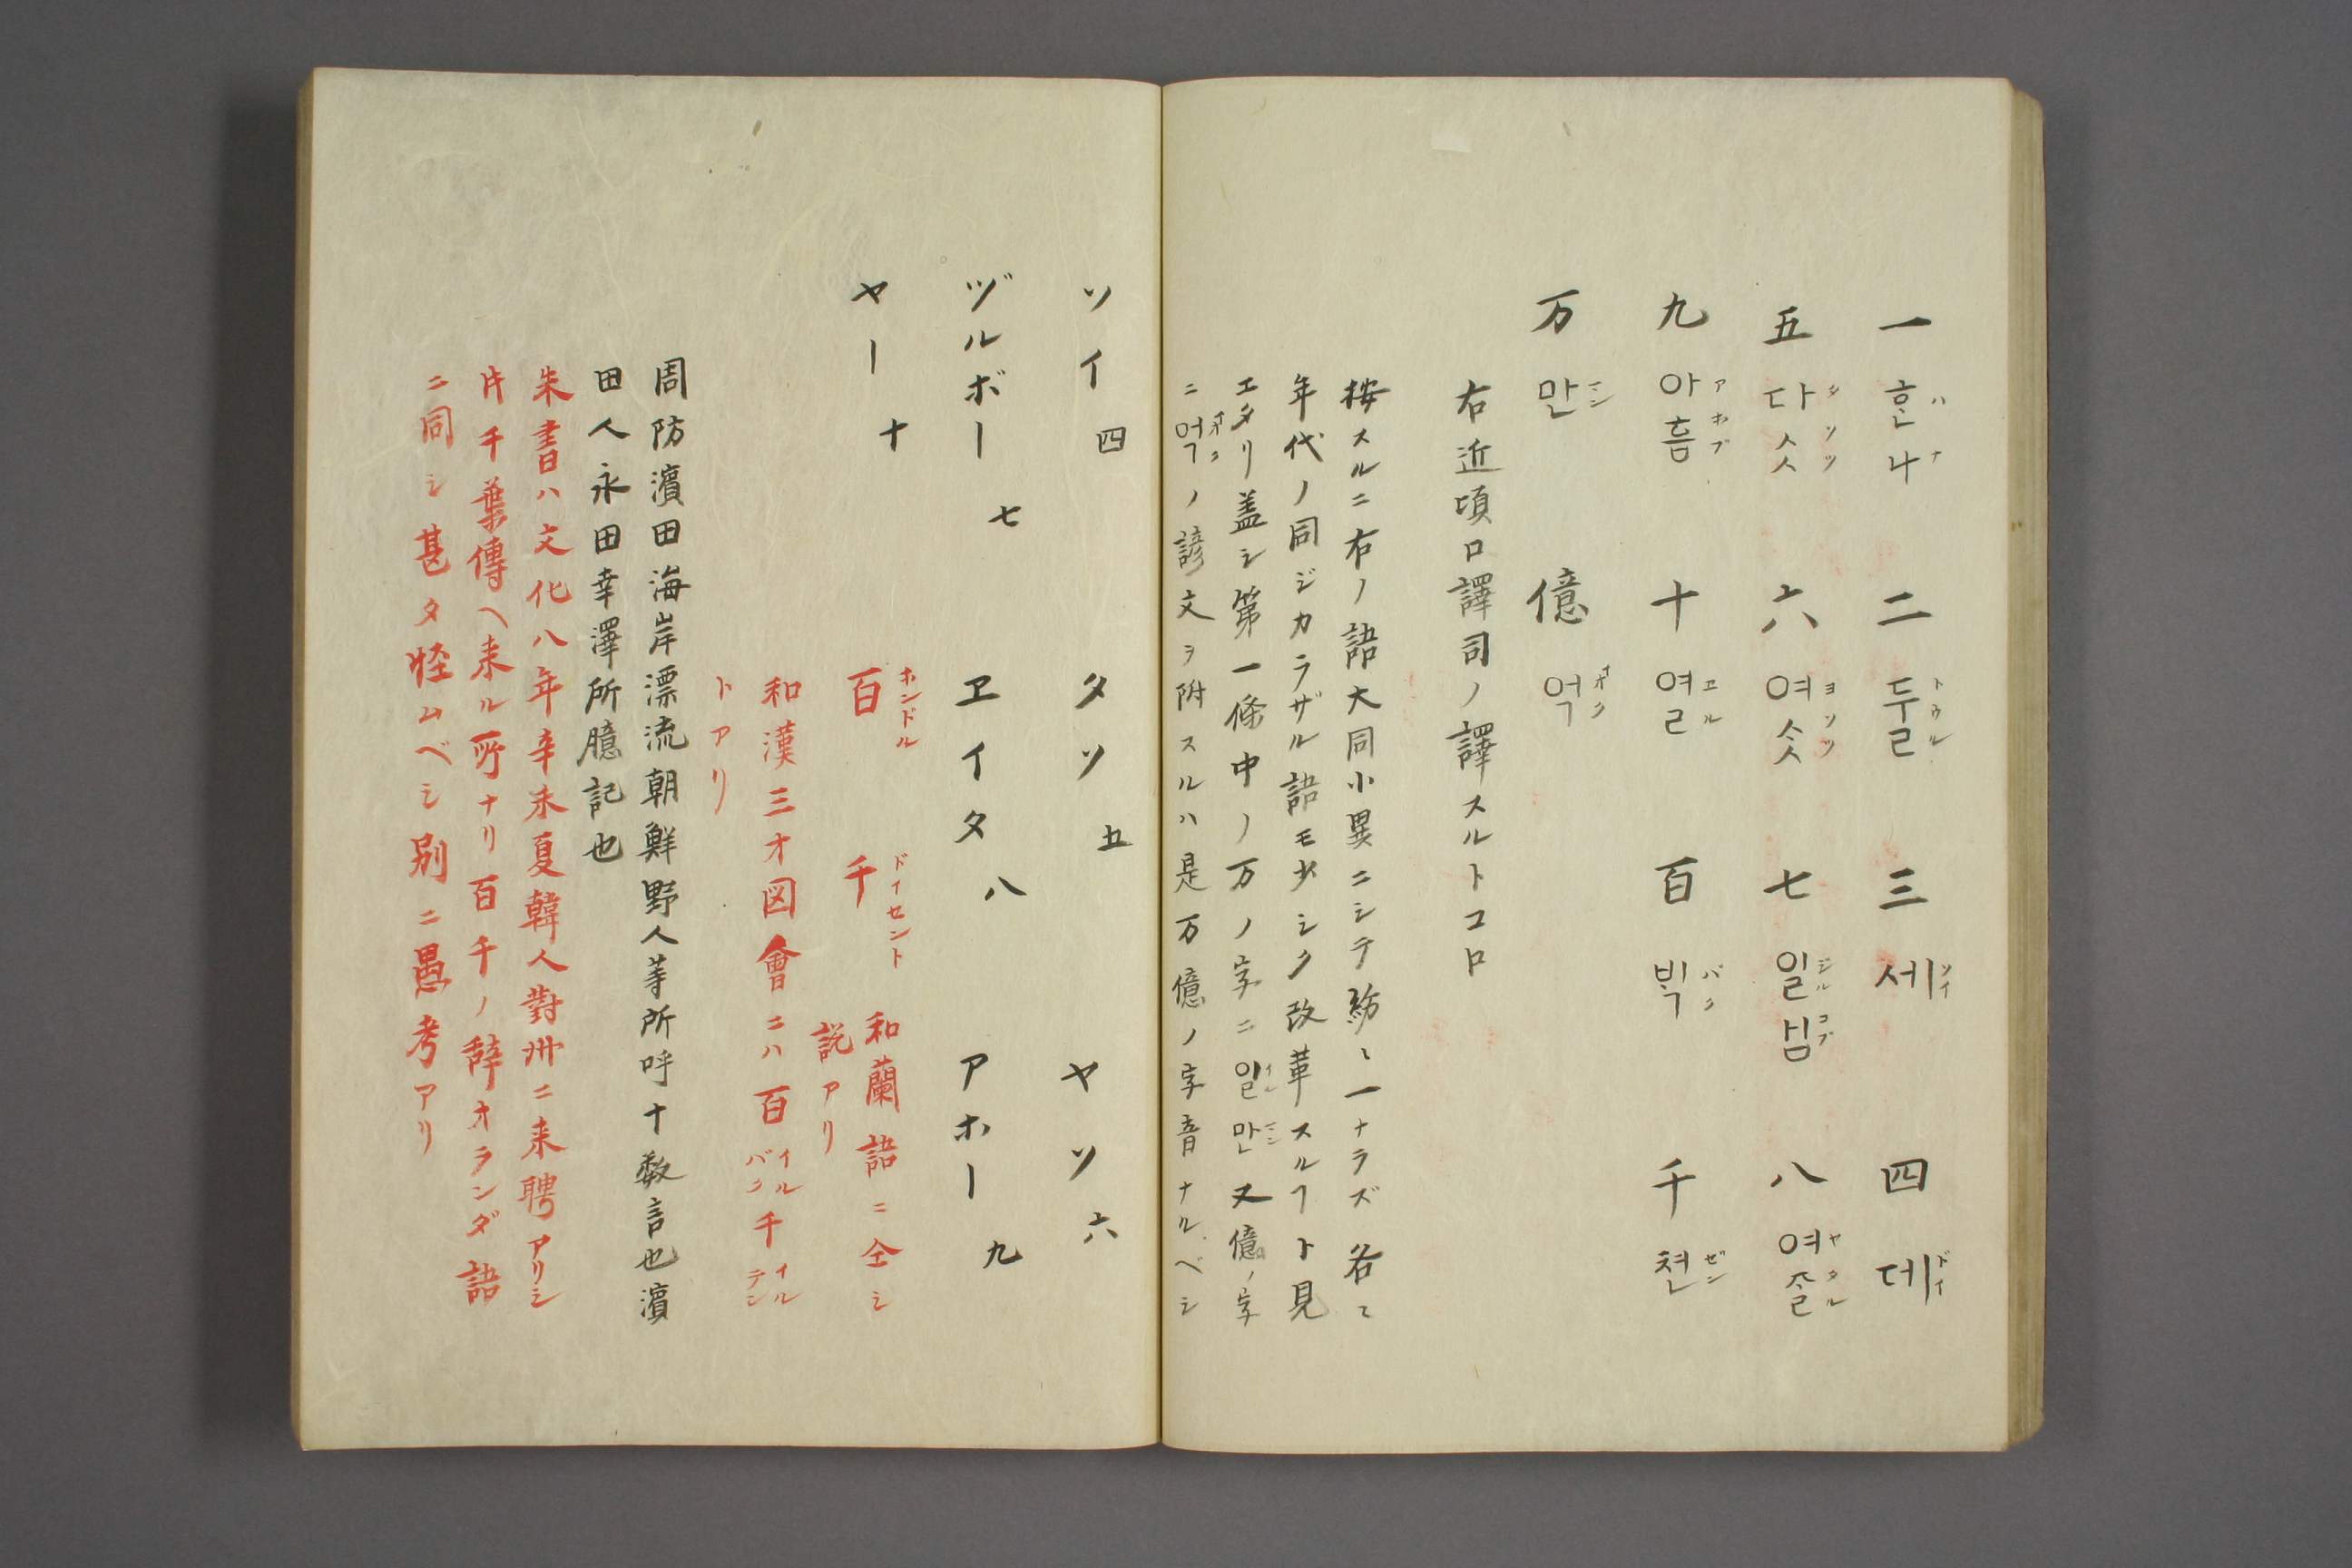 一 혼나 ハナ 二 둘 トウル 三 세 ソイ 四 데 ドイ
五 다솟 タソツ 六 여솟 ヨソツ 七 일곱 ジルコブ 八 여즐 ヤタル
九 아흠 アホブ 十 열 ヱル 百 빅 バク 千 쳔 ゼン
万 만 マン 億 억 オク
右近頃口譯司ノ譯スルトコロ
按スルニ右ノ語大同小異ニシテ紛〻一ナラズ各〻
年代ノ同ジカラザル語モ少シク改革スルヿト見
エタリ盖シ第一條中ノ万ノ字ニ일만又億ノ字
ニ억ノ諺文ヲ附スルハ是万億ノ字音ナルベシ
ソイ 四 タソ 五 ヤソ 六
ヅルボー 七 ヱイタ 八 アホー 九
ヤー 十
百 ホンドル 千 ドイセント 和蘭語ニ仝シ
説アリ
和漢三才図會ニハ百イルバク千イルテン
トアリ
周防濵田海岸漂流朝鮮野人等所呼十数言也濵
田人永田幸澤所臆記也
朱書ハ文化八年辛未夏韓人對州ニ来聘アリシ
片千葉傳ヘ来ル所ナリ百千ノ辞オランダ語
ニ同シ甚タ怪ムベシ別ニ愚考アリ